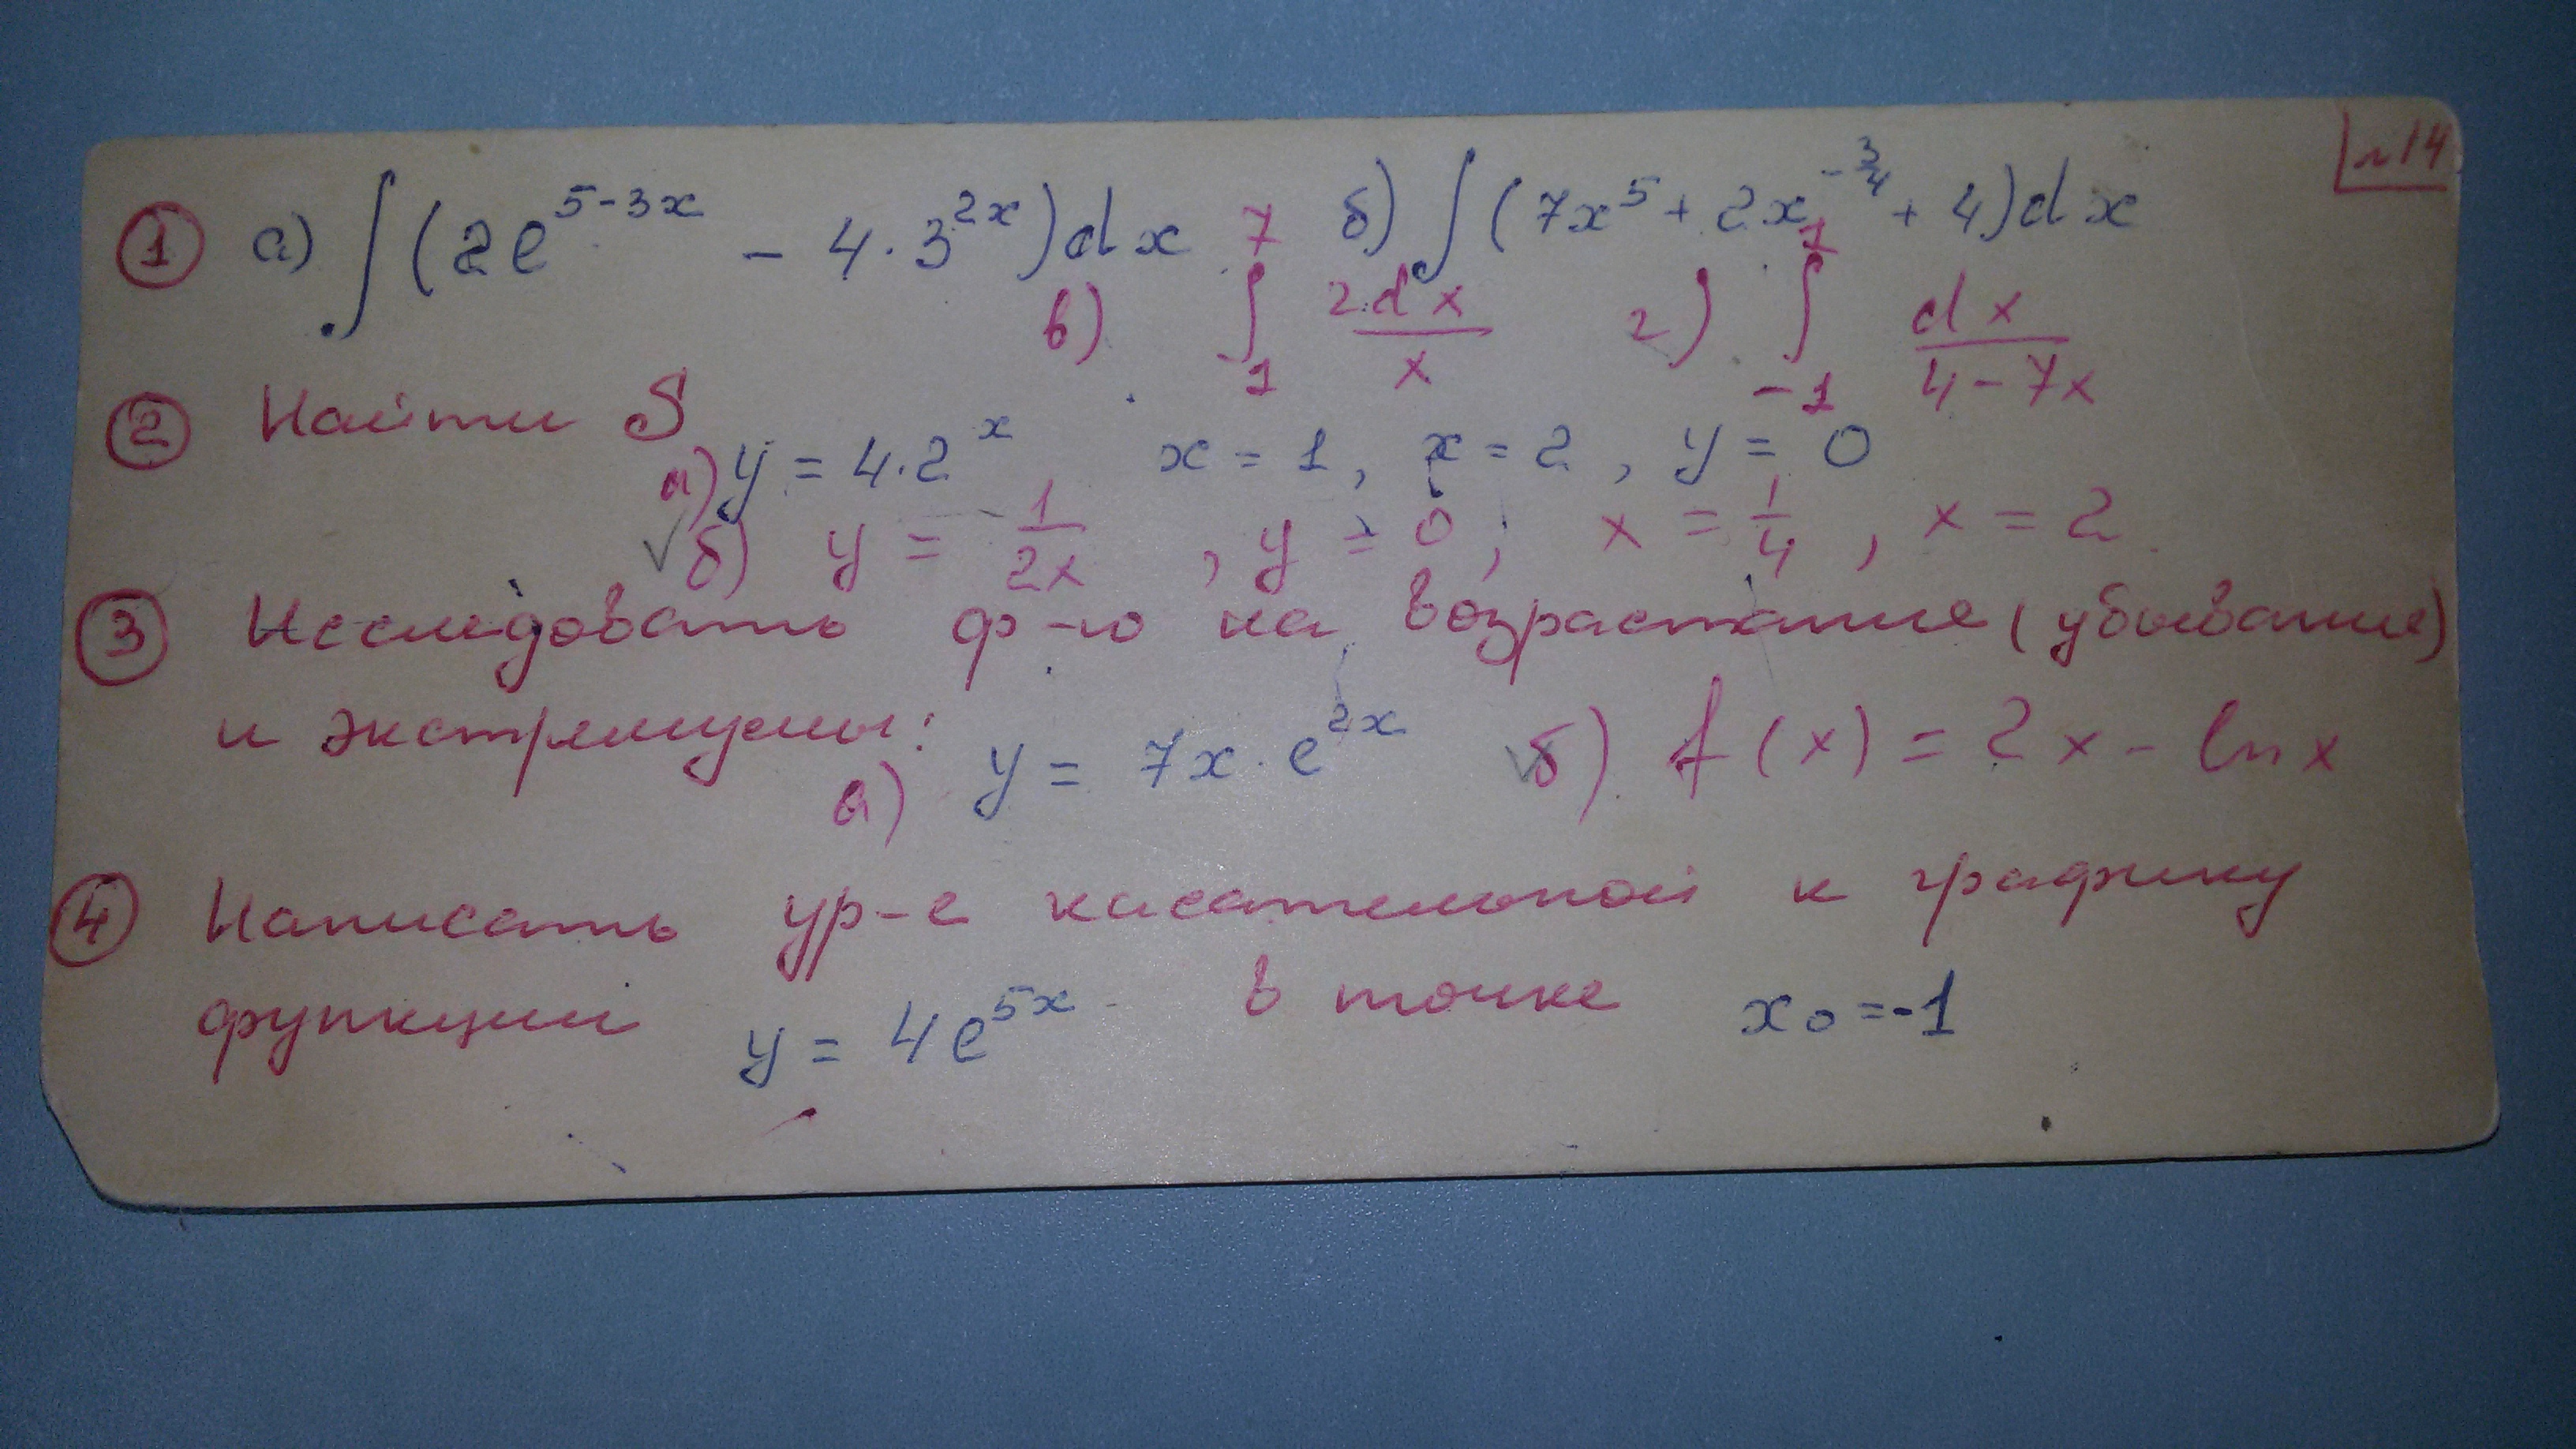 ① а) ∫(2e^{5-3x} - 4·3^{2x})dx б) ∫(7x^5 + 2x^{-3/4} + 4)dx л14
в) ∫_{1}^{7} 2dx/x г) ∫_{-1}^{1} dx/(4-7x)
② Найти S
а) y = 4·2^x x = 1, x = 2, y = 0
√ б) y = 1/(2x), y = 0; x = 1/4, x = 2
③ Исследовать ф-ю на возрастание (убывание)
и экстремумы:
а) y = 7x·e^{2x} √ б) f(x) = 2x - ln x
④ Написать ур-е касательной к графику
функции y = 4e^{5x} в точке x_0 = -1